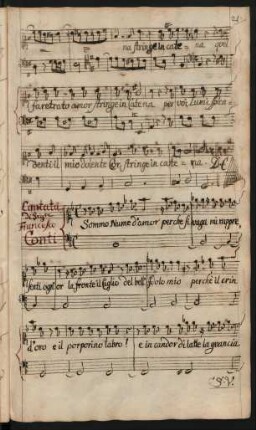 na stringe in cate = na
faretrato amor stringe in catena per voi Lumi
denti il mio dolente Cor stringe in cate = na. D.C.
Cantata
Del Sigr
Francesco
Conti
Sommo Nume d'amor perche si vaga mi rappre
senti ogn'or la fronte il ciglio del bell' Idolo mio perche il crin
d'oro e il porporino labro! e in candor di latte la guancia